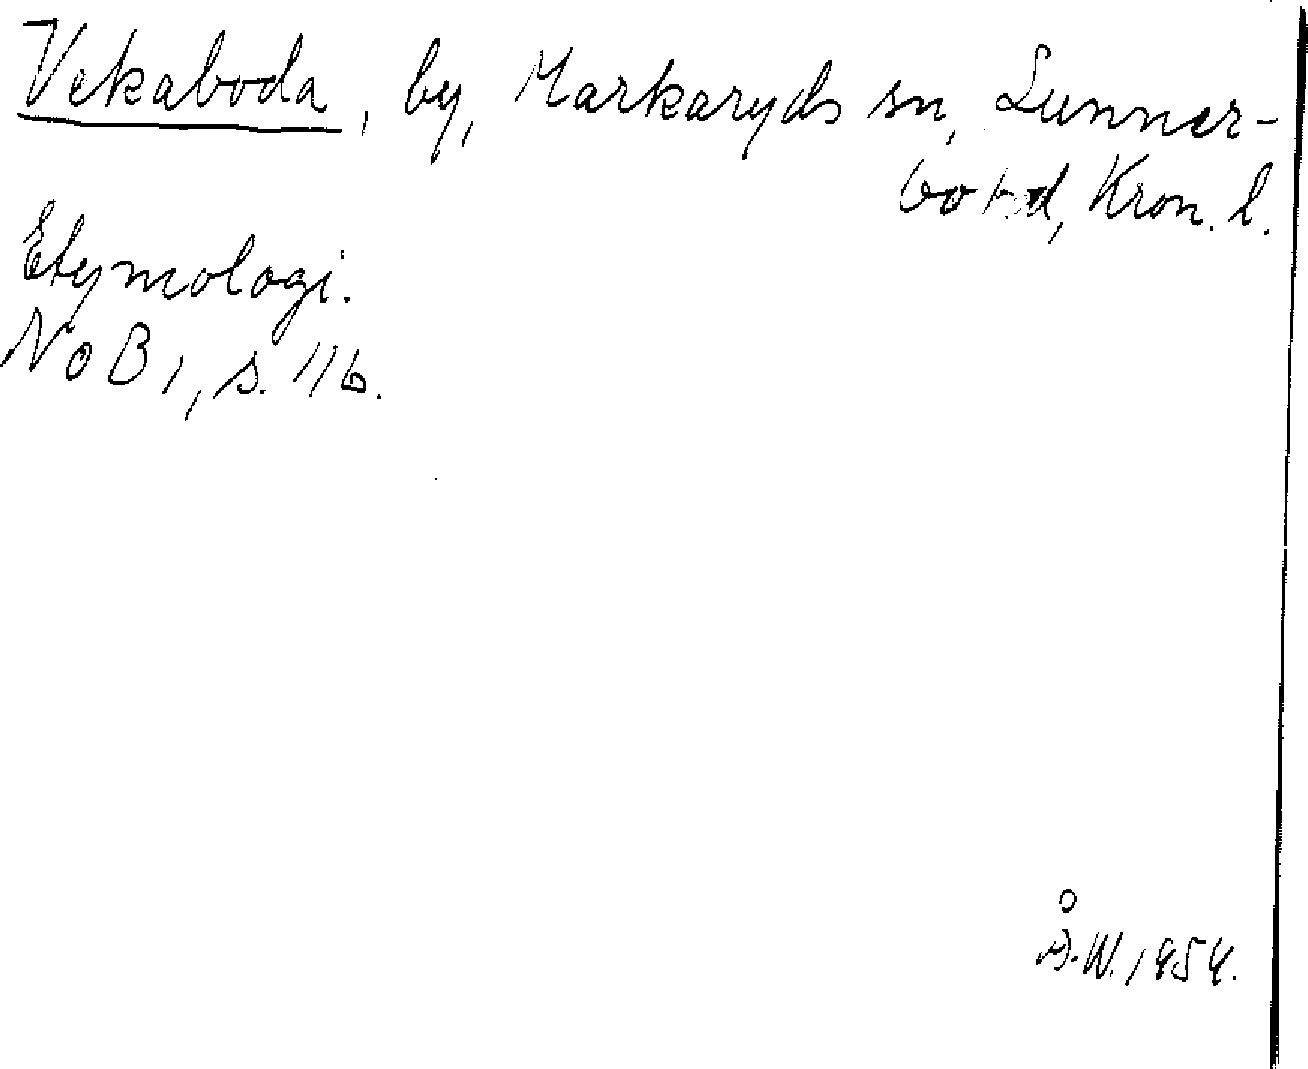 Vekaboda, by, Markaryds sn, Sunner-
bo hd, Kron. l.
Etymologi.
NoB 1, s. 116.
Å.W. 1954.